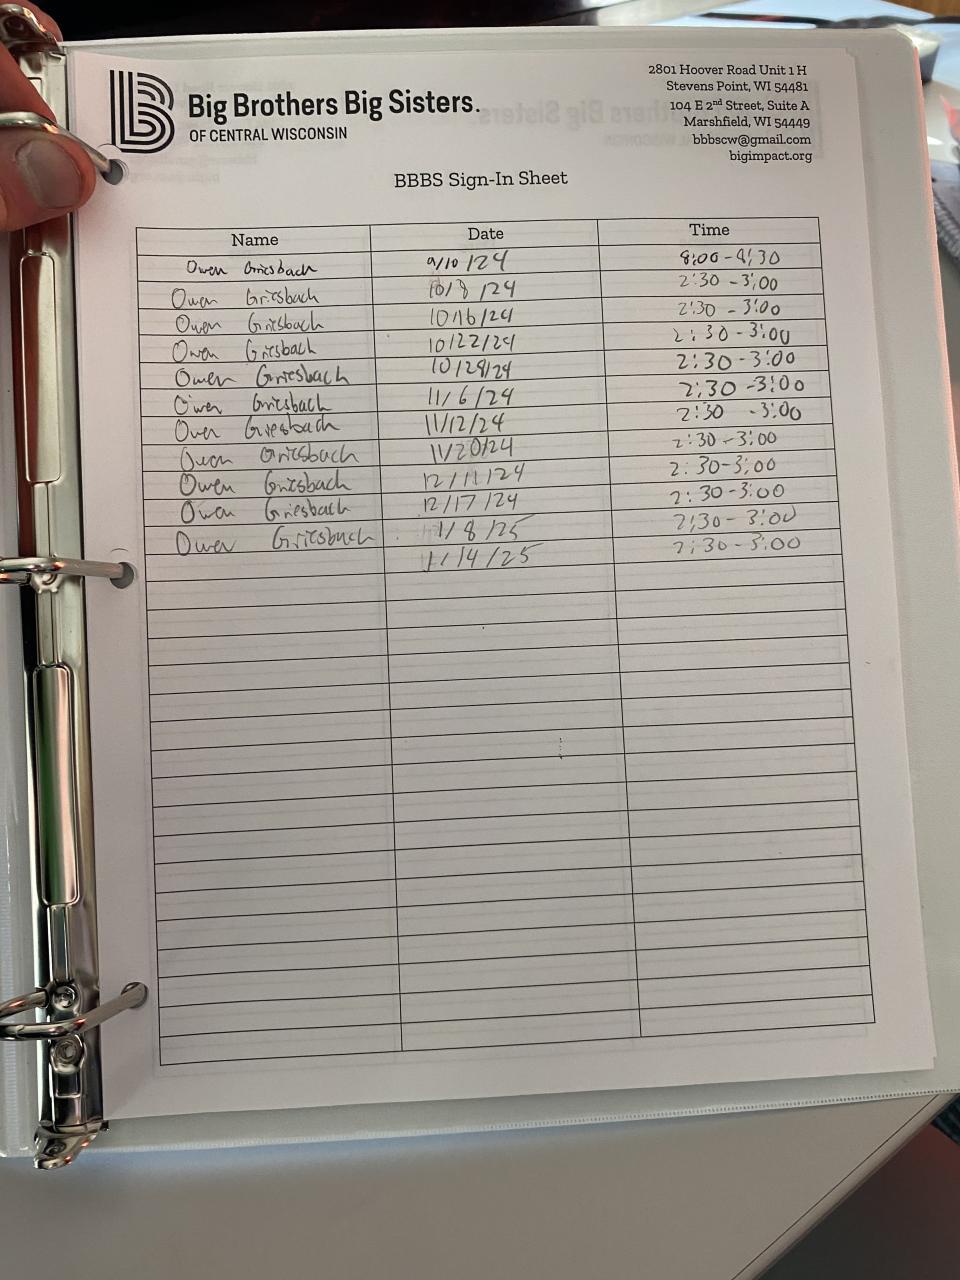 Big Brothers Big Sisters.
OF CENTRAL WISCONSIN
2801 Hoover Road Unit 1 H
Stevens Point, WI 54481
104 E 2nd Street, Suite A
Marshfield, WI 54449
bbbscw@gmail.com
bigimpact.org
BBBS Sign-In Sheet
Name Date Time
Owen Griesbach 9/10/24 8:00-8:30
Owen Griesbach 10/8/24 2:30-3:00
Owen Griesbach 10/16/24 2:30-3:00
Owen Griesbach 10/22/24 2:30-3:00
Owen Griesbach 10/29/24 2:30-3:00
Owen Griesbach 11/6/24 2:30-3:00
Owen Griesbach 11/12/24 2:30-3:00
Owen Griesbach 11/20/24 2:30-3:00
Owen Griesbach 12/11/24 2:30-3:00
Owen Griesbach 12/17/24 2:30-3:00
Owen Griesbach 1/8/25 2:30-3:00
1/14/25 2:30-3:00